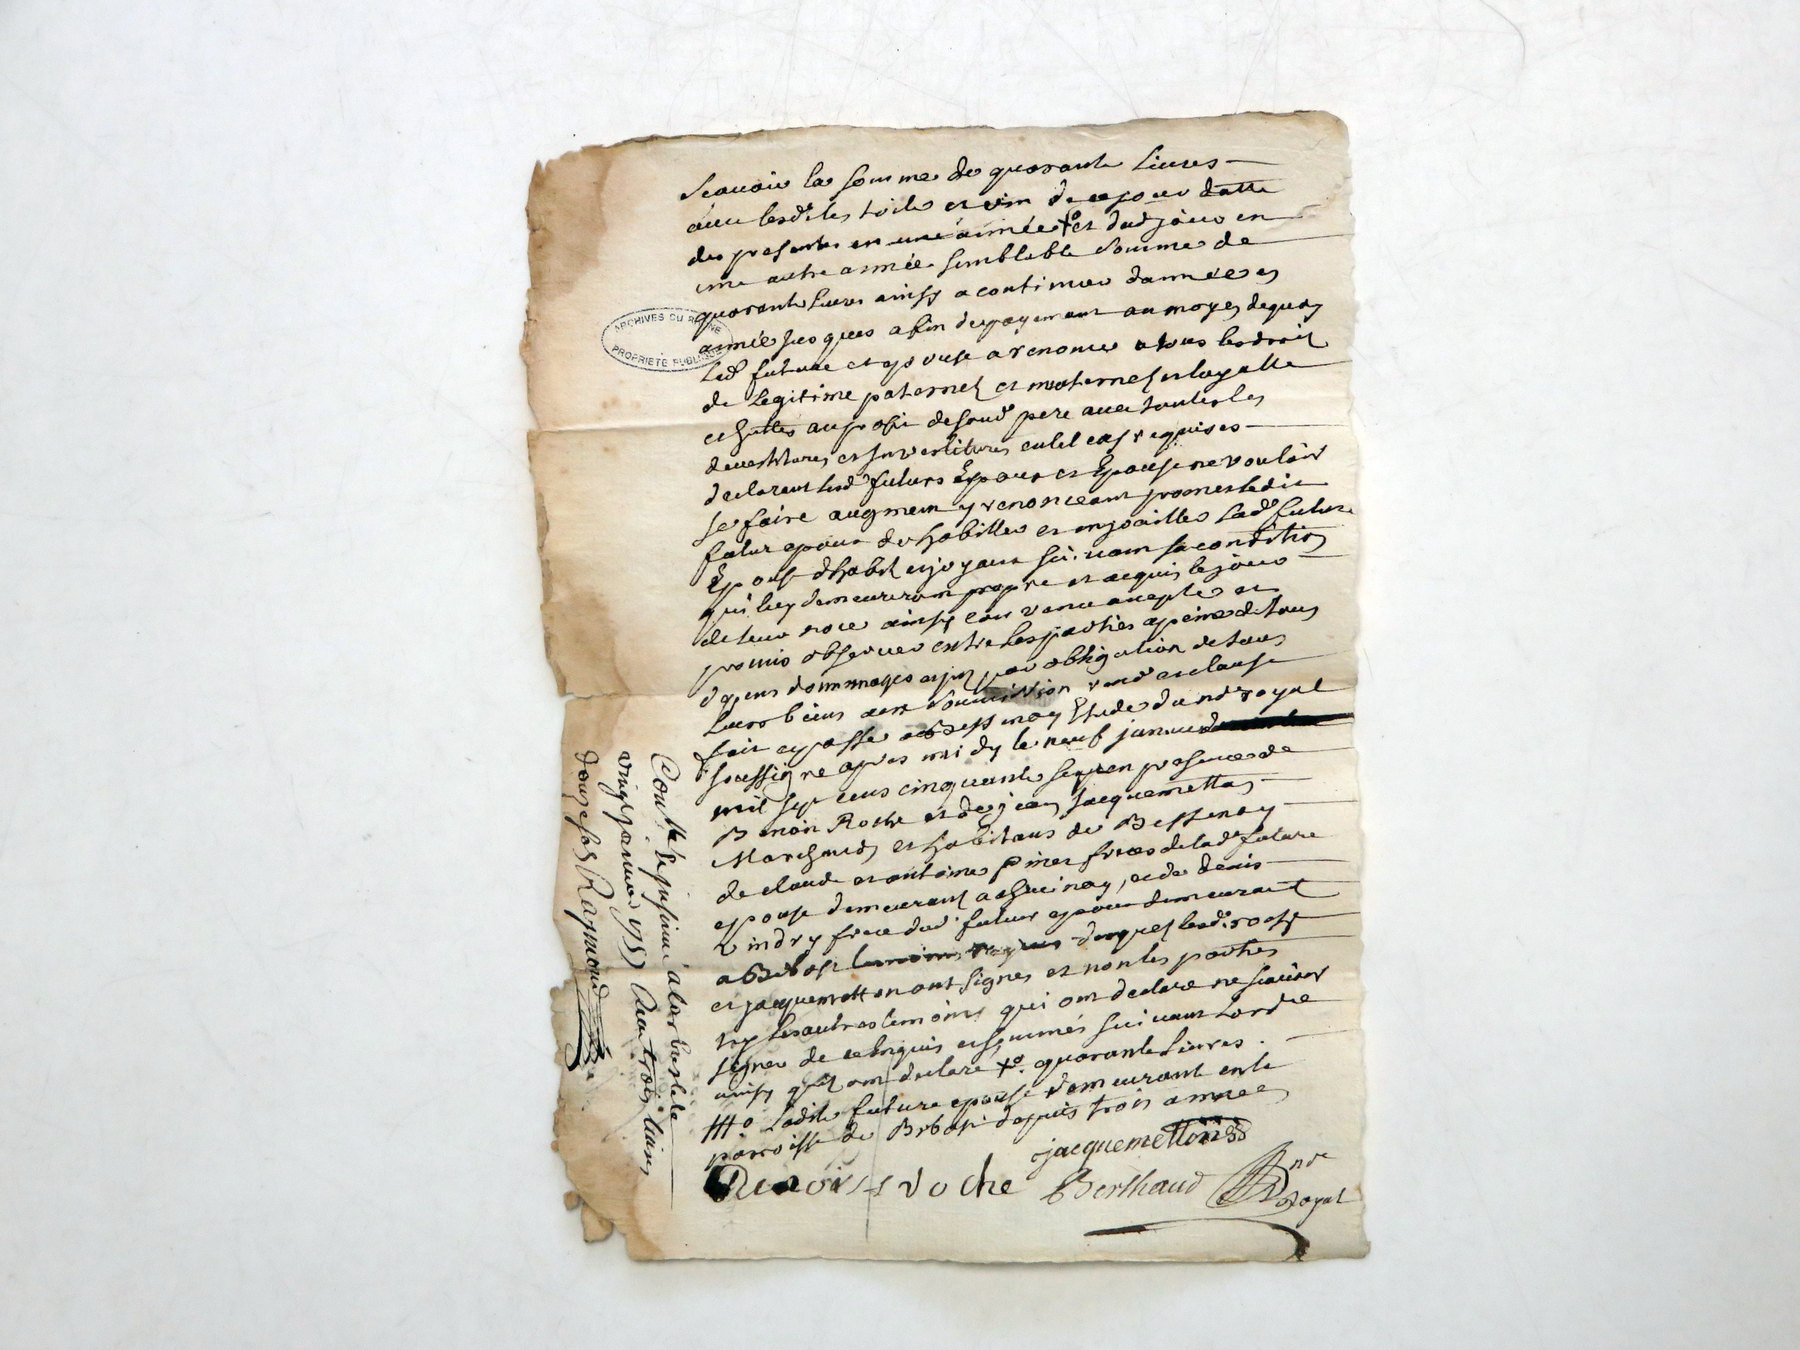 Scavoir la somme de quarante Livres
avec lesd. toile et vin de ce jour datte
des presentes en une année +o et dud. jour en
une autre année semblable somme de
quarante livres ainsy a continuer dannée en
année jusques a fin de payement au moyen de quoy
Lad. future epouse a renoncé a tous les droit
de Legitime paternel et maternel
au profit de sond. pere avec toutes les
devestitures et Investitures en tel cas requises
declarent lesd. futurs Epoux et Epouse ne vouloir
se faire augment y renonceant promet ledit
futur epoux de habiller et enjoailler Lad. future
Epouse dhabit et joyaux suivant sa condition
qui luy demeureront propre et acquis le jour
de leur noce ainsy convenu accepté et
promis observer entre les parties a peine de tous
depens dommages par obligation de tous
Leurs biens soumission renon et clause
fait et passé a Bessenay Etude du nre royal
soussigné apres midy le neuf janvier
mil sept cens cinquante sept en presence de
Benoit Roche et de jean jacquemetton
Marchands et habitans de Bessenay
de claude et antoine pinet freres de lad. future
epouse demeurant a et de denis
Vindry frere dud. futur epoux demeurant
a Bibost desquels lesd. roche
et jacquemetton ont signés et non les parties
ny les autres temoins qui ont declaré ne scavoir
signer de ce enquis et sommés suivant Lordre
ainsy quil ont declaré +o quarante Livres.
Ladite future epouse demeurant en la
paroisse de Bibost depuis trois années
jacquemetton
Benoist roche Berthaud nre
royal
Controllé a larbresle le
vingt janvier 1757 Reçu trois livres
douze sols Raymond
ARCHIVES DU RHÔNE
PROPRIÉTÉ PUBLIQUE